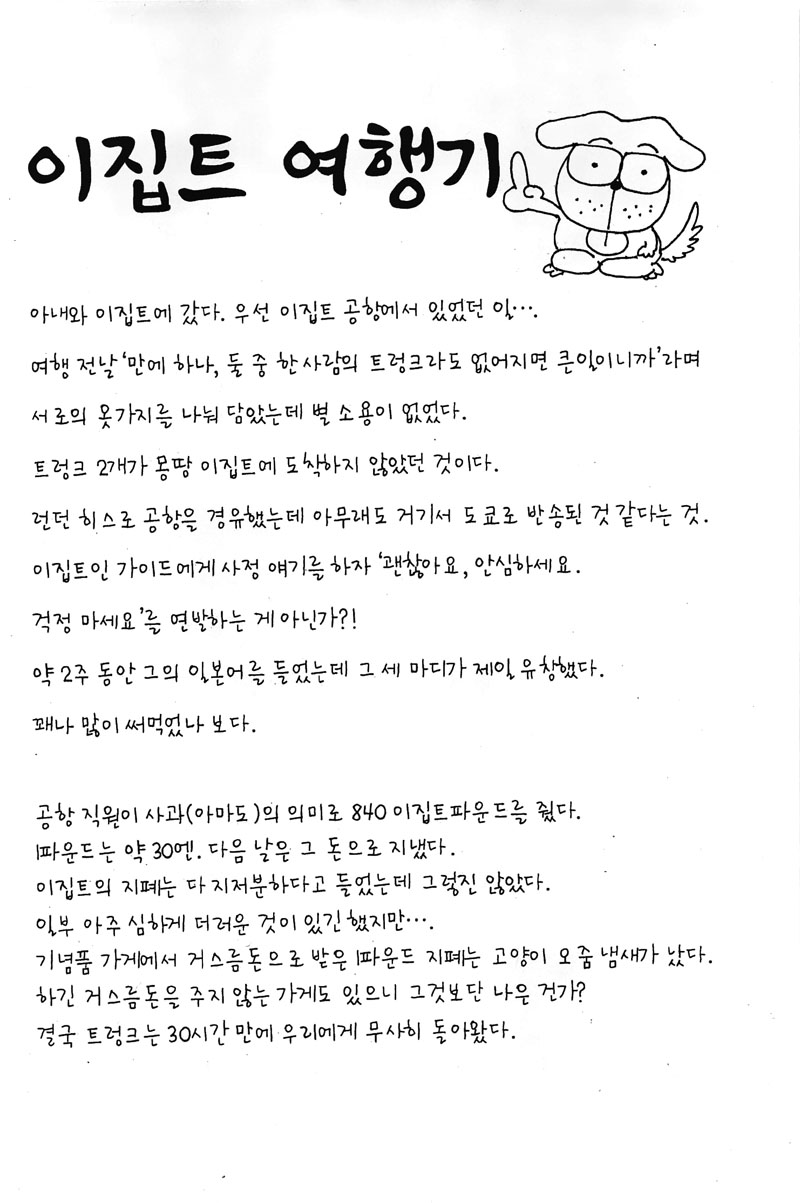 이집트 여행기
아내와 이집트에 갔다. 우선 이집트 공항에서 있었던 일….
여행 전날 ‘만에 하나, 둘 중 한 사람의 트렁크라도 없어지면 큰일이니까’라며
서로의 옷가지를 나눠 담았는데 별 소용이 없었다.
트렁크 2개가 몽땅 이집트에 도착하지 않았던 것이다.
런던 히스로 공항을 경유했는데 아무래도 거기서 도쿄로 반송된 것 같다는 것.
이집트인 가이드에게 사정 얘기를 하자 ‘괜찮아요, 안심하세요.
걱정 마세요’를 연발하는 게 아닌가?!
약 2주 동안 그의 일본어를 들었는데 그 세 마디가 제일 유창했다.
꽤나 많이 써먹었나 보다.
공항 직원이 사과(아마도)의 의미로 840 이집트파운드를 줬다.
1파운드는 약 30엔. 다음 날은 그 돈으로 지냈다.
이집트의 지폐는 다 지저분하다고 들었는데 그렇진 않았다.
일부 아주 심하게 더러운 것이 있긴 했지만….
기념품 가게에서 거스름돈으로 받은 1파운드 지폐는 고양이 오줌 냄새가 났다.
하긴 거스름돈을 주지 않는 가게도 있으니 그것보단 나은 건가?
결국 트렁크는 30시간 만에 우리에게 무사히 돌아왔다.